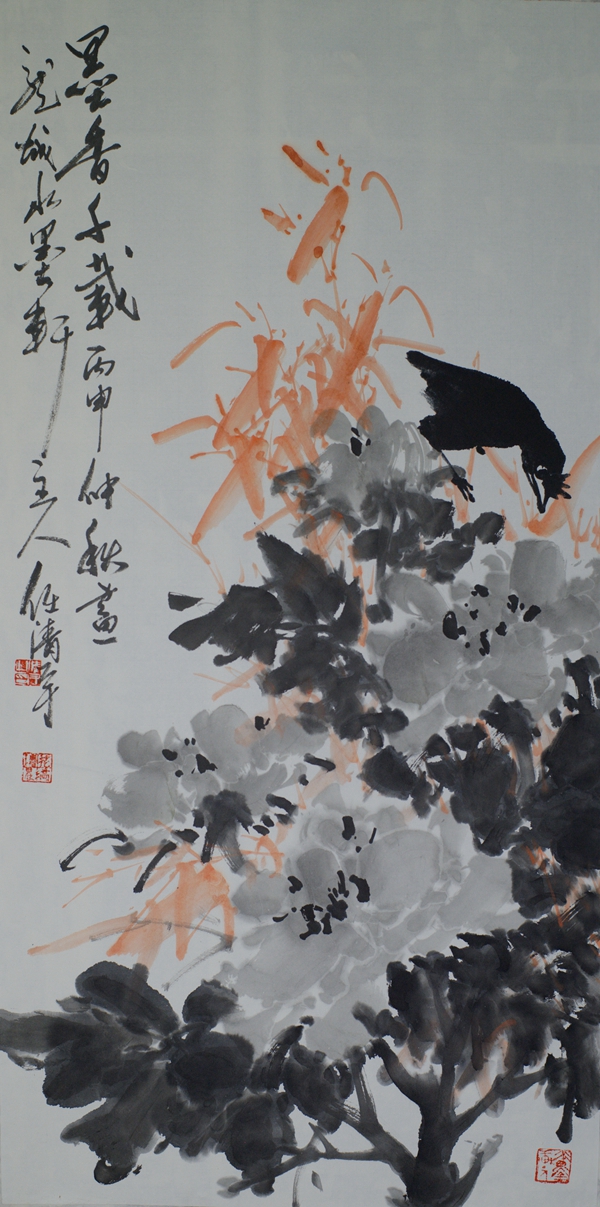 墨香千載丙申仲秋畫
龍城水墨軒主人任清平